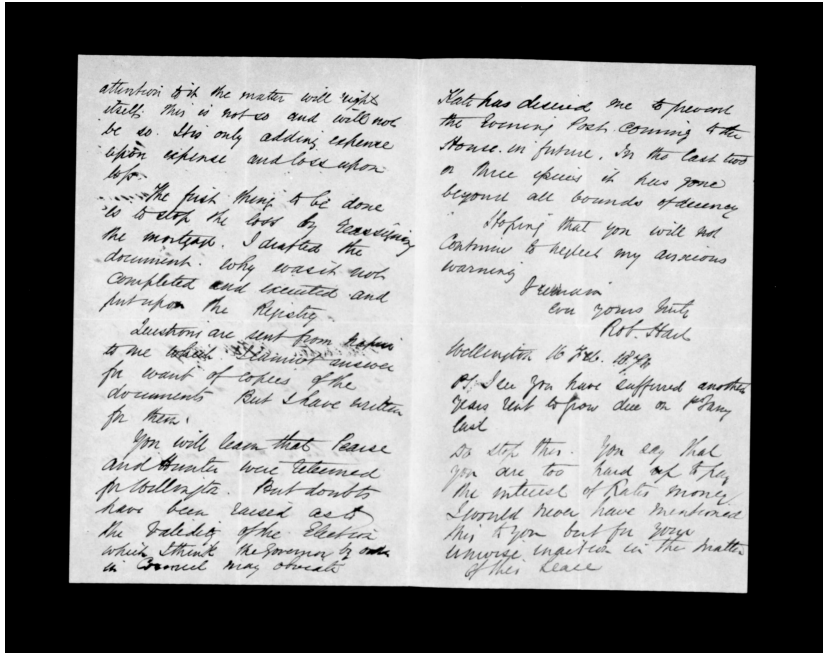 attention to it the matter will right
itself. this is not so and will not
be so. It is only adding expense
upon expense and loss upon
loss.
The first thing to be done
is to stop the loss by reassigning
the mortgage. I drafted the
document. Why was it not
completed and executed and
put upon the Registry
Questions are sent from
to me which I cannot answer
for want of copies of the
documents But I have written
for them.
You will learn that Pearce
and Hunter were returned
for Wellington. But doubts
have been raised as to
the Validity of the Election
which I think the Governor by order
in Council may obviate
Kate has desired me to prevent
the Evening Post coming to the
House in future. In the last two
or three it has gone
beyond all bounds of decency
Hoping that you will not
Continue to neglect my anxious
warning
I remain
ever yours truly
Rob. Hart
Wellington 16 Feb.
PS. I see you have suffered another
years rent to grow due on 1st Jany
last
Do stop this. You say that
you are too hard up to pay
the interest of Kates money
I would never have mentioned
this to you but for your
unwise inaction in the matter
of this Lease